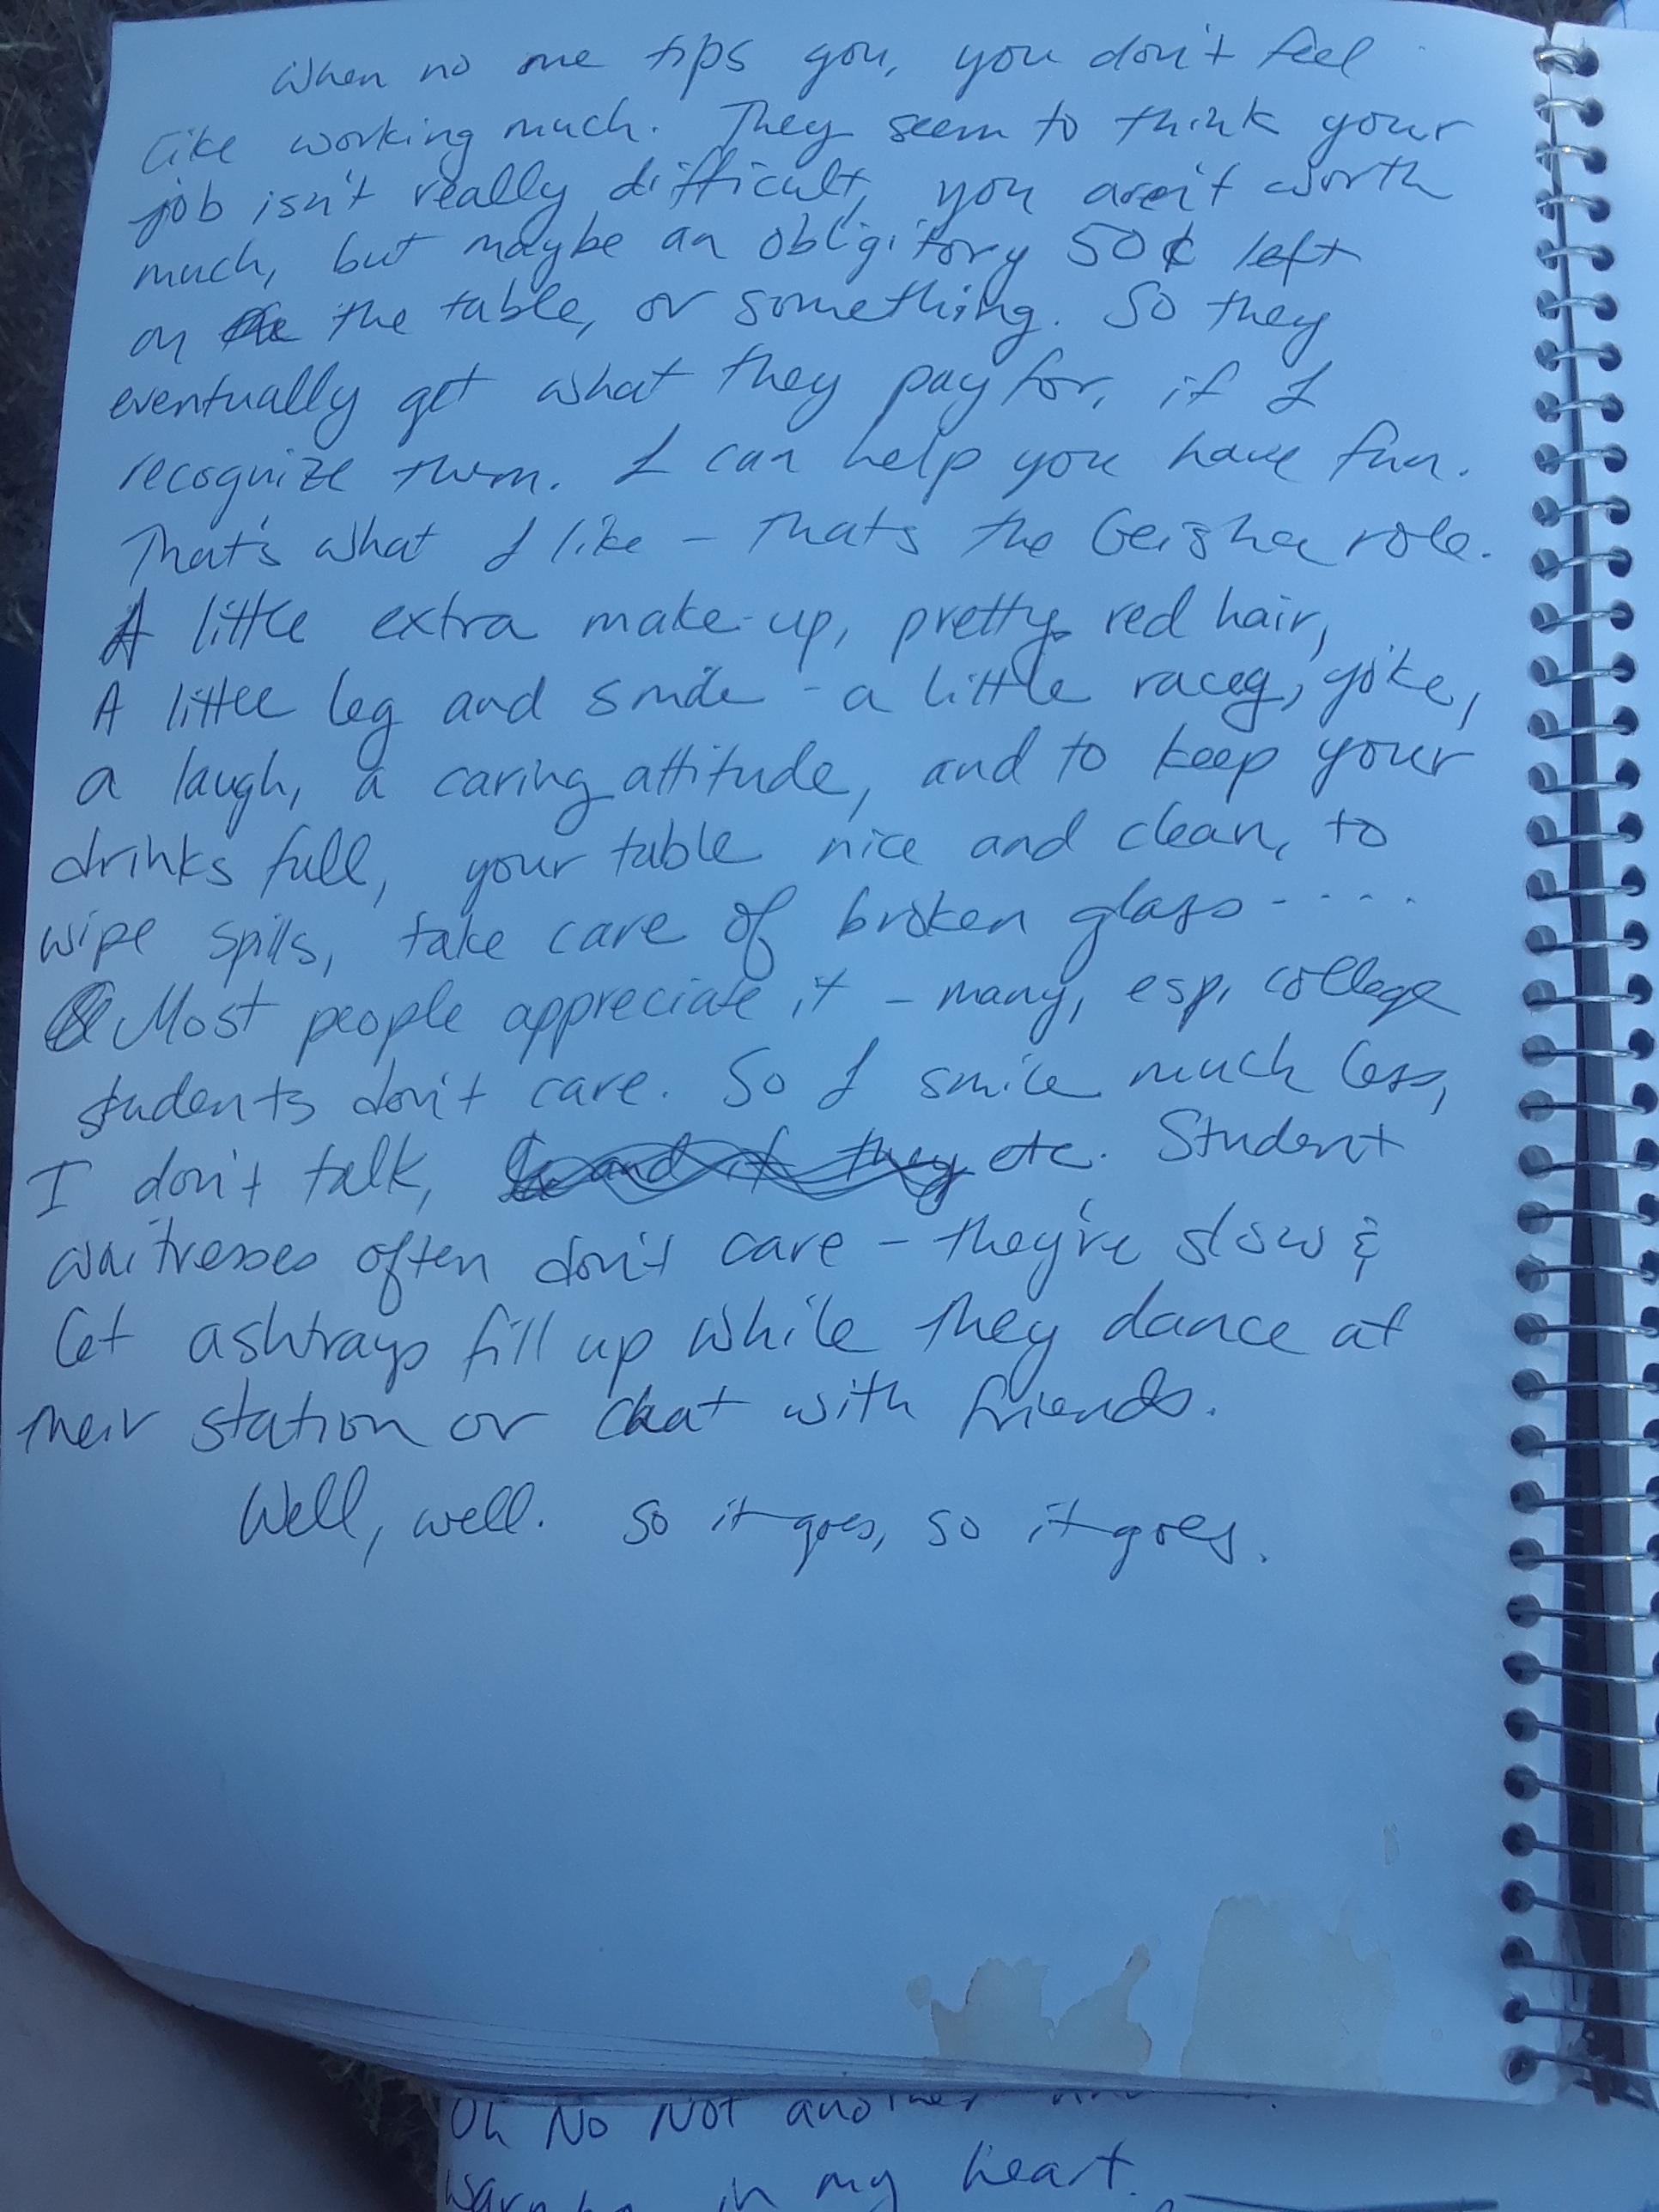 When no one tips you, you don't feel
like working much. They seem to think your
job isn't really difficult, you aren't worth
much, but maybe an obligitory 50¢ left
on the the table, or something. So they
eventually get what they pay for, if I
recognize them. I can help you have fun.
That's what I like - thats the Geisha role.
A little extra make-up, pretty red hair,
A little leg and smile - a little racey, joke,
a laugh, a caring attitude, and to keep your
drinks full, your table nice and clean, to
wipe spills, take care of broken glass - - - -
Most people appreciate it - many, esp. college
students don't care. So I smile much less,
I don't talk, and if they etc. Student
waitresses often don't care - they're slow &
let ashtrays fill up while they dance at
their station or chat with friends.
Well, well. So it goes, so it goes.
Oh No Not another
in my heart.